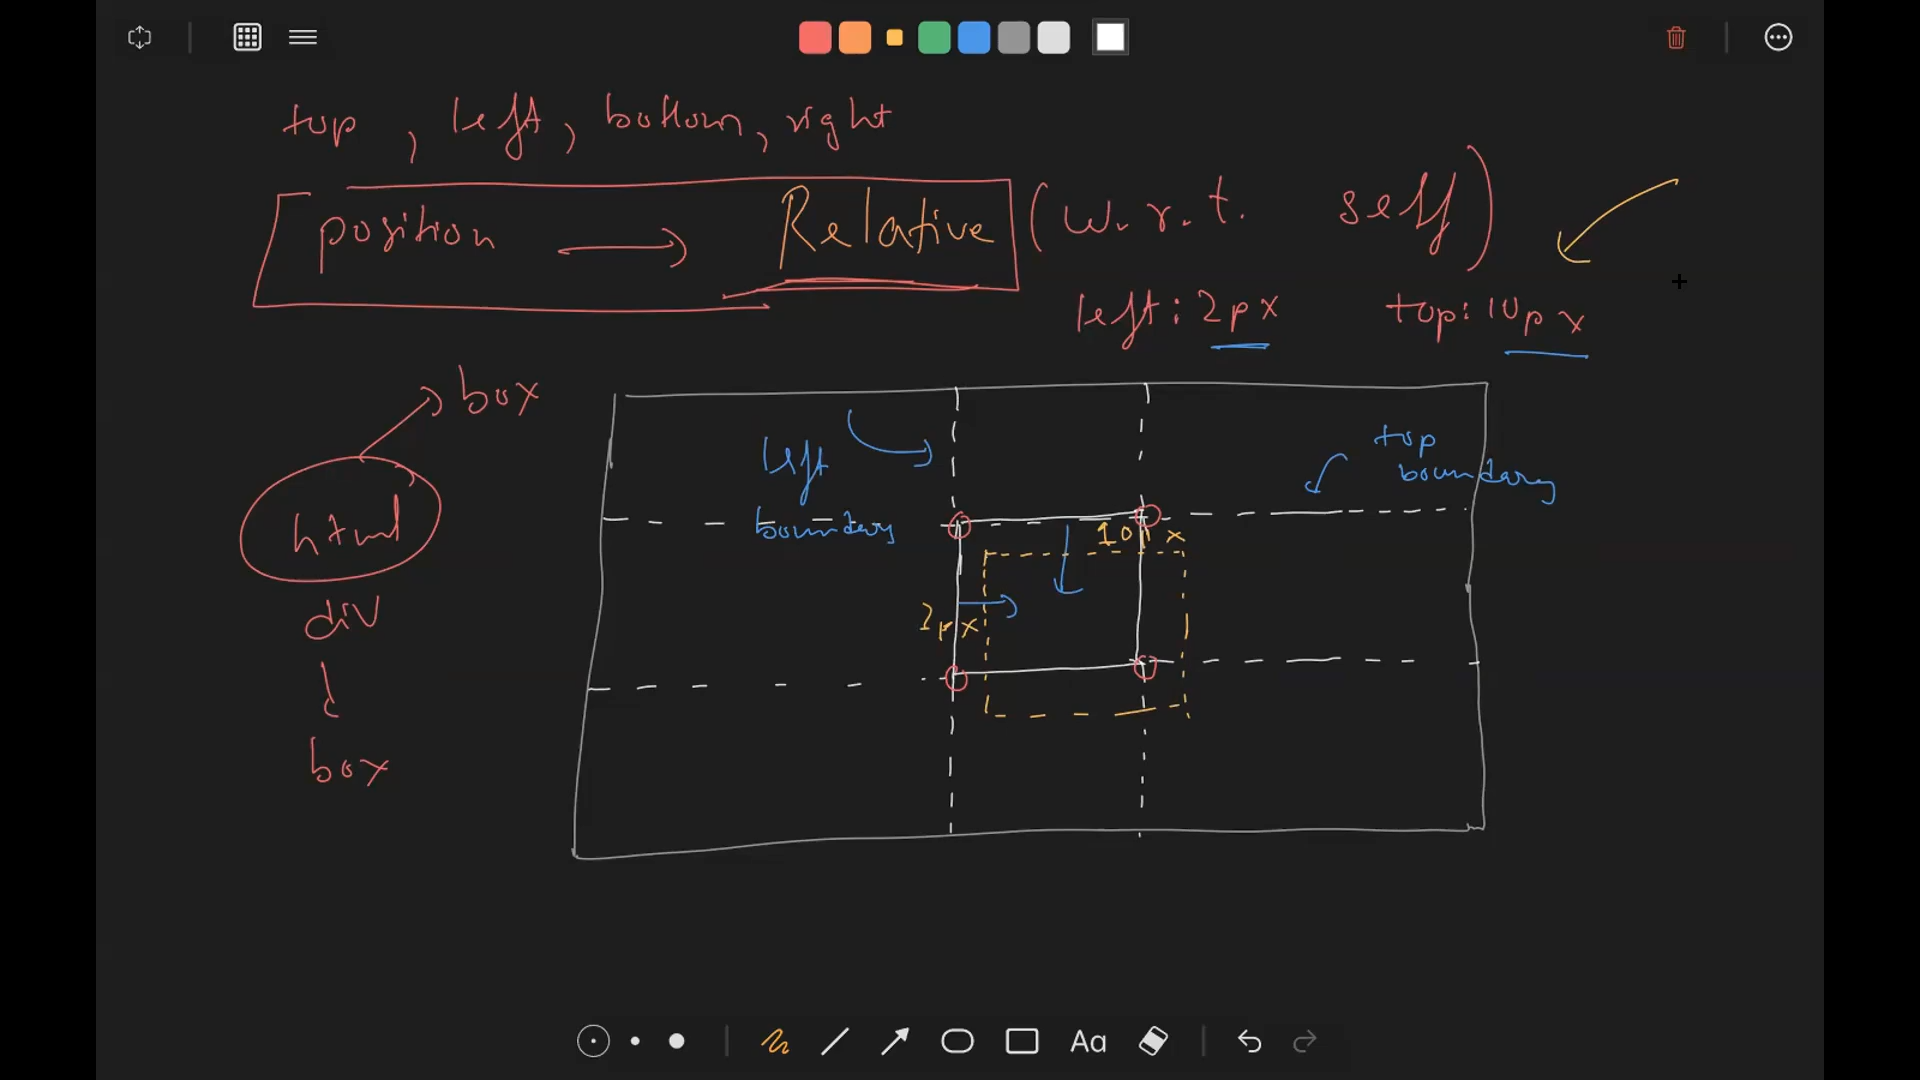 top, left, bottom, right
position → Relative (w.r.t. self)
left: 2px top: 10px
box
html
div
box
left
boundary
top
boundary
10px
2px
Aa